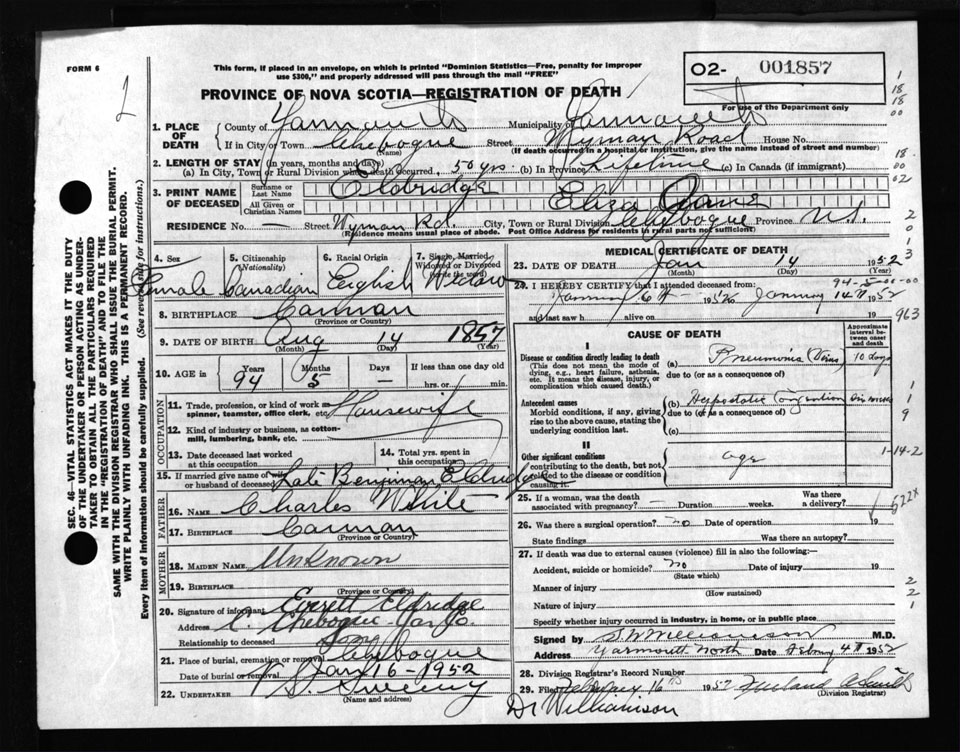 FORM 6
This form, if placed in an envelope, on which is printed "Dominion Statistics—Free, penalty for improper
use $300," and properly addressed will pass through the mail "FREE"
PROVINCE OF NOVA SCOTIA—REGISTRATION OF DEATH
02- 001857
For use of the Department only
SEC. 46—VITAL STATISTICS ACT MAKES IT THE DUTY
OF THE UNDERTAKER OR PERSON ACTING AS UNDER-
TAKER TO OBTAIN ALL THE PARTICULARS REQUIRED
IN THE "REGISTRATION OF DEATH" AND TO FILE THE
SAME WITH THE DIVISION REGISTRAR WHO SHALL ISSUE THE BURIAL PERMIT.
WRITE PLAINLY WITH UNFADING INK. THIS IS A PERMANENT RECORD.
Every item of information should be carefully supplied. (See reverse side for instructions.)
1. PLACE OF DEATH
County of Yarmouth Municipality of Yarmouth
If in City or Town Chebogue Street Wyman Road House No.
(Name) (If death occurred in a hospital or institution, give the name instead of street and number)
2. LENGTH OF STAY (in years, months and days)
(a) In City, Town or Rural Division where death occurred, 50 yrs (b) In Province Lifetime (c) In Canada (if immigrant)
3. PRINT NAME OF DECEASED
Surname or Last Name Eldridge
All Given or Christian Names Eliza Jane
RESIDENCE No. — Street Wyman Rd. City, Town or Rural Division Chebogue Province N.S.
(Residence means usual place of abode. Post Office Address for residents in rural parts not sufficient)
4. Sex Female
5. Citizenship (Nationality) Canadian
6. Racial Origin English
7. Single, Married, Widowed or Divorced (write the word) Widow
8. BIRTHPLACE Cannan
(Province or Country)
9. DATE OF BIRTH Aug 14 1857
(Month) (Day) (Year)
10. AGE in Years 94 Months 5 Days — If less than one day old
hrs. or min.
OCCUPATION
11. Trade, profession, or kind of work as spinner, teamster, office clerk, etc. Housewife
12. Kind of industry or business, as cotton-mill, lumbering, bank, etc.
13. Date deceased last worked at this occupation
14. Total yrs. spent in this occupation
15. If married give name of wife or husband of deceased Late Benjiman Eldridge
FATHER
16. NAME Charles White
17. BIRTHPLACE Cannan
(Province or Country)
MOTHER
18. MAIDEN NAME Unknown
19. BIRTHPLACE
(Province or Country)
20. Signature of informant Everett Eldridge
Address C. Chebogue Yar Co.
Relationship to deceased Son
21. Place of burial, cremation or removal Chebogue
Date of burial or removal Jan 16-1952
22. UNDERTAKER V. S. Sweeny
(Name and address)
MEDICAL CERTIFICATE OF DEATH
23. DATE OF DEATH Jan 14 1952
(Month) (Day) (Year)
94-5-00-00
24. I HEREBY CERTIFY that I attended deceased from
January 6th 1952 to January 14th 1952
and last saw h alive on 19
CAUSE OF DEATH
Approximate interval between onset and death
I
Disease or condition directly leading to death
(This does not mean the mode of dying, e.g., heart failure, asthenia, etc. It means the disease, injury, or complication which caused death.)
(a) Pneumonia (Virus) 10 days
due to (or as a consequence of)
Antecedent causes
Morbid conditions, if any, giving rise to the above cause, stating the underlying condition last.
(b) Hypostatic Congestion
due to (or as a consequence of)
(c)
II
Other significant conditions
contributing to the death, but not related to the disease or condition causing it.
age
25. If a woman, was the death associated with pregnancy? — Duration weeks. Was there a delivery?
26. Was there a surgical operation? no Date of operation 19
State findings Was there an autopsy?
27. If death was due to external causes (violence) fill in also the following:—
Accident, suicide or homicide? no Date of injury 19
(State which)
Manner of injury
(How sustained)
Nature of injury
Specify whether injury occurred in industry, in home, or in public place
Signed by S. W. Williamson M.D.
Address Yarmouth North Date 1952
28. Division Registrar's Record Number
29. Filed February 16th 1952
(Division Registrar)
Dr Williamson
1
18
18
00
18.
00
02
2
0
1
3
963
1
1
9
1-14-2
622x
2
2
1